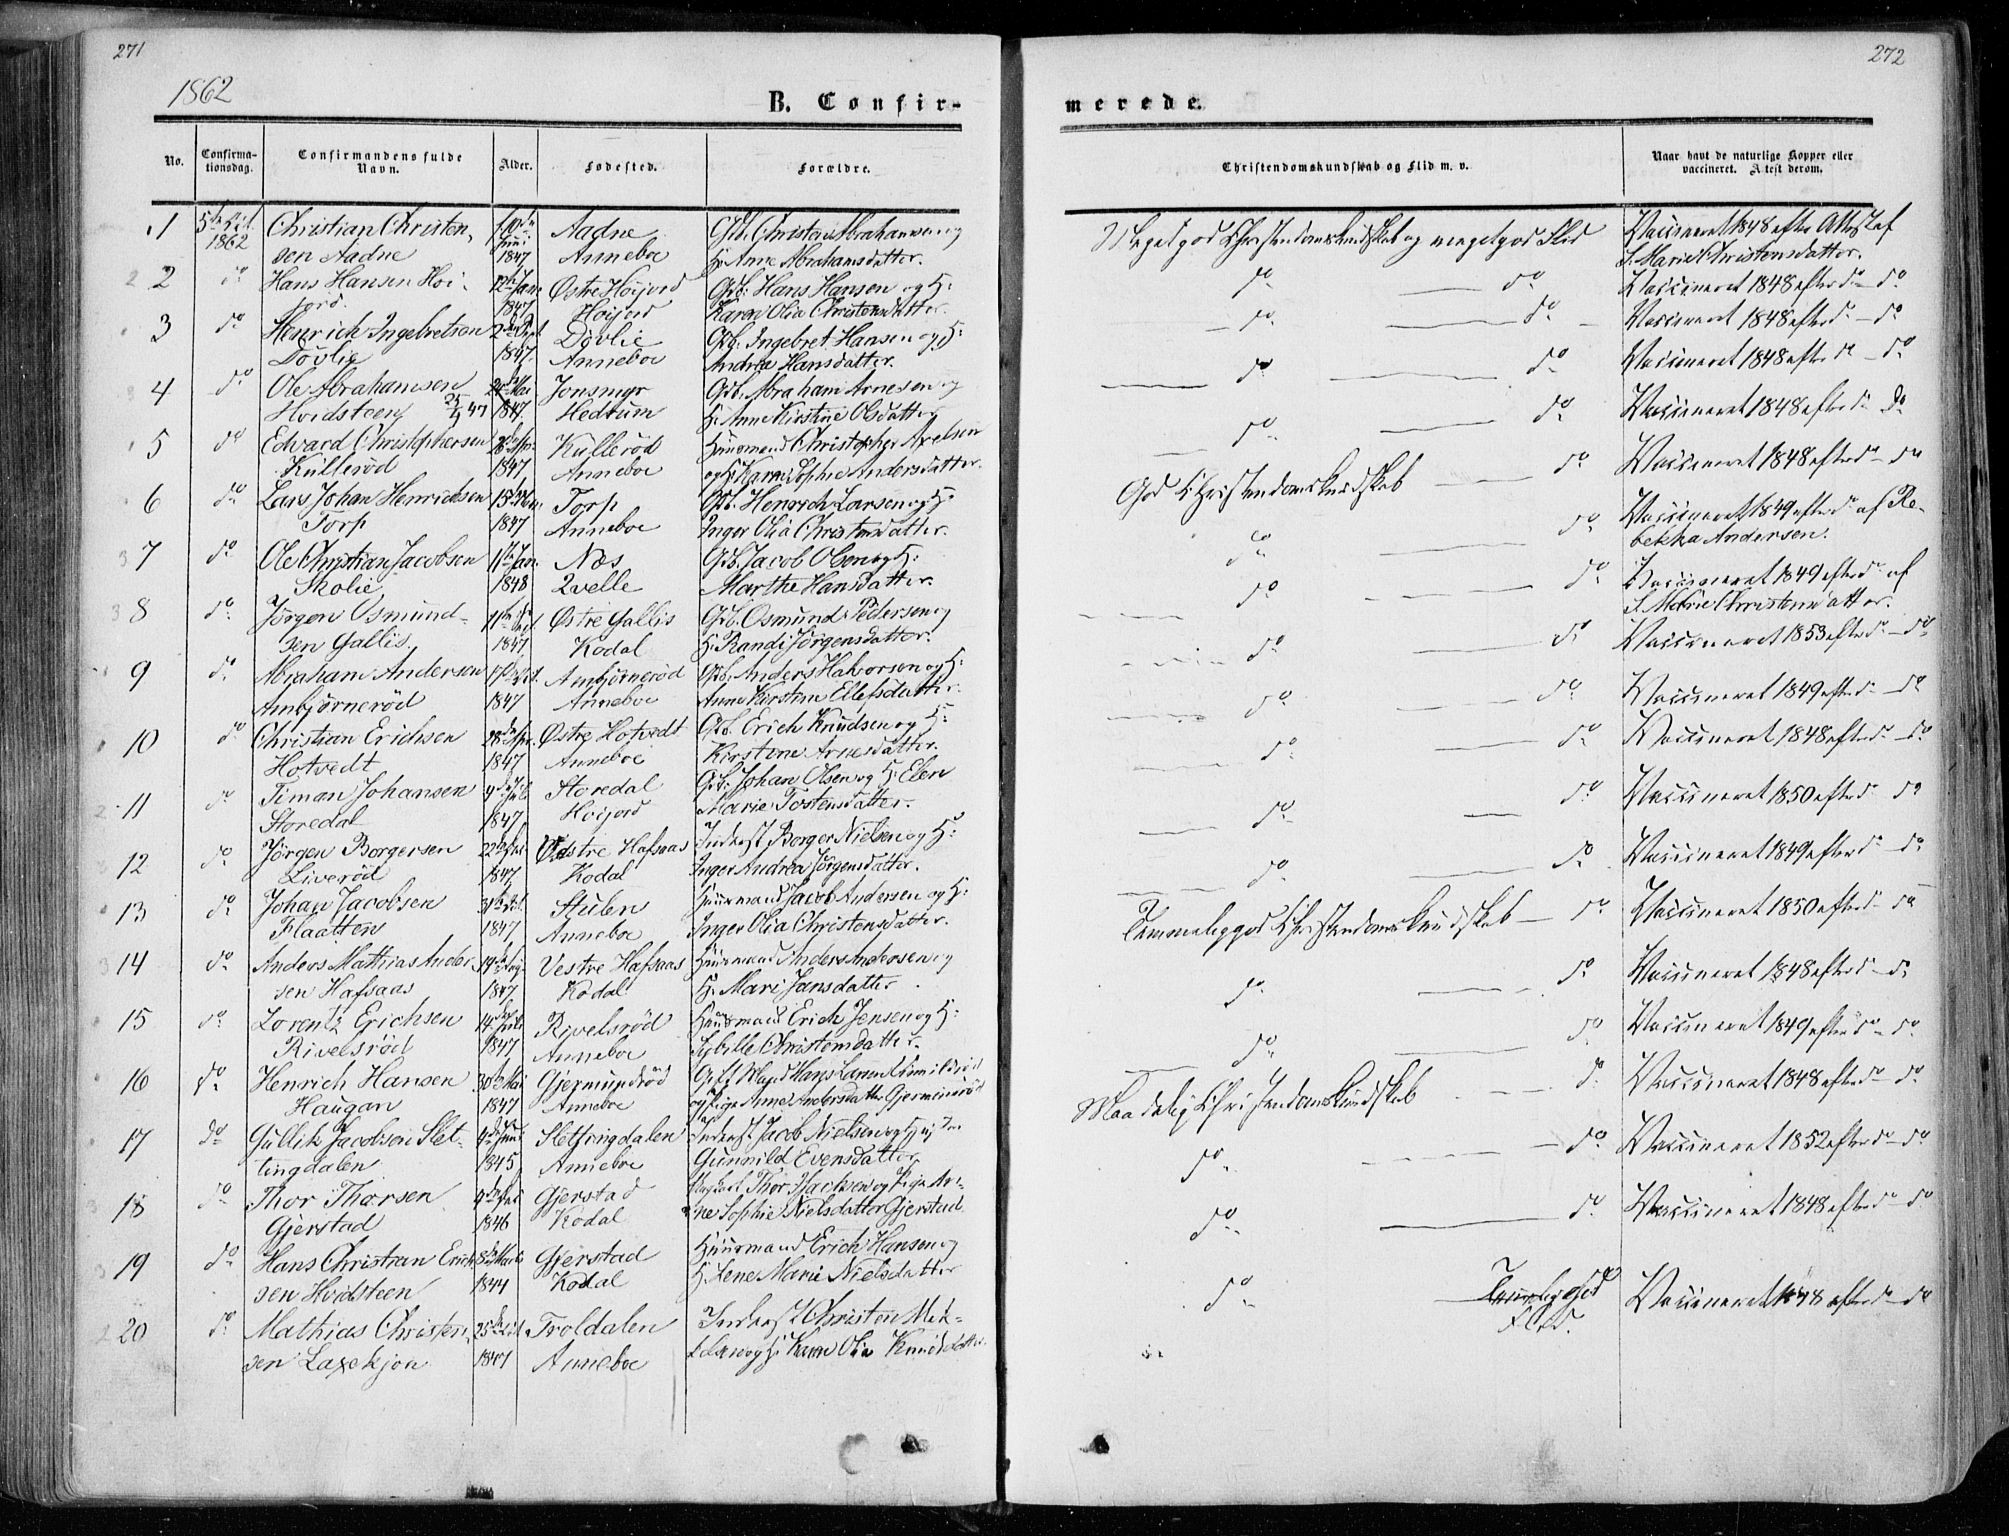 271
272
1862
B. Confir-
merede.
No.
Confirma-
tionsdag.
Confirmandens fulde
Navn.
Alder.
Fødested.
Forældre.
Christendomskundskab og Flid m. v.
Naar havt de naturlige Kopper eller
vaccineret. Attest derom.
1 5te Oct. Christian Christen- 10de Aadne Gb. Christen Abrahamsen og Meget god Christendomskundskab og meget god Flid Vaccineret 1848 efter Attest af
1862 sen Aadne Juni 1847 Anneboe H: Anne Abrahamsdatter. S. Marie Christensdatter.
2 do Hans Hansen Høi- 12te Jan. Østre Høijord Gb: Hans Hansen og H: do do Vaccineret 1848 efter do do
jord. 1847 Høijord Karen Olia Christensdatter.
3 do Henrich Ingebretsen 2den Døvlie Gb: Ingebret Hansen og H: do do Vaccineret 1848 efter do do
Døvlie 1847. Anneboe Andrea Hansdatter.
4 do Ole Abrahamsen Mai Jonsmyr Gb. Abraham Arnesen og do do Vaccineret 1848 efter do do
Hvidsteen 47 1847. Hedrum H: Anne Kirstine Olsdatter
5 do Edvard Christophersen Apr. Küllerød Huusmand Christopher Axelsen do do Vaccineret 1848 efter do do
Küllerød 1847 Anneboe og H: Karen Sophie Andersdatter.
6 do Lars Johan Henrichsen 15de Torp Gb. Henrich Larsen og H: God Christendomskundskab do Vaccineret 1848 efter do do
Torp 1847 Anneboe Inger Olia Christensdatter.
7 do Ole Christian Jacobsen 11te Jan. Næs Gb. Jacob Olsen og H: do do Vaccineret 1849 efter do af Re-
Skolie 1848 Qvelle Marthe Hansdatter. bekka Andersen.
8 do Jørgen Osmund- 11te Østre Gallis Gb. Osmund Pedersen og do do Vaccineret 1849 efter do af
sen Gallis. 1847 Kodal H: Randi Jørgensdatter. S. Marie Christensdatter.
9 do Abraham Andersen 17de Ambjørnerød Gb. Anders Halvorsen og H: do do Vaccineret 1853 efter do do
Ambjørnerød 1847 Anneboe Anne Kirstine Ellefsdatter.
10 do Christian Erichsen 28de Apr. Østre Hotvedt Gb. Erich Knudsen og H: do do Vaccineret 1849 efter do do
Hotvedt 1847 Anneboe Kirstine Arnesdatter.
11 do Timan Johansen Storedal Gb: Johan Olsen og H: Elen do do Vaccineret 1848 efter do do
Storedal 1847 Høijord Marie Tostensdatter.
12 do Jørgen Borgersen 22de Vestre Hafsaas Inderst Borger Nielsen og H: do do Vaccineret 1850 efter do do
Liverød 1847 Kodal Inger Andrea Jørgensdatter.
13 do Johan Jacobsen 31te Oct. Stulen Huusmand Jacob Andersen og H: do do Vaccineret 1849 efter do do
Flaatten 1847 Anneboe Inger Olia Christensdatter.
14 do Anders Mathias Ander- 19de Aug. Vestre Hafsaas Huusmand Anders Andersen og Temmelig god Christendomskundskab do Vaccineret 1850 efter do do
sen Hafsaas 1847 Kodal H. Mari Jansdatter
15 do Lorentz Erichsen 14de Rivelsrød Huusmand Erich Jensen og H: do do Vaccineret 1848 efter do do
Rivelsrød 1847 Anneboe Sybille Christensdatter.
16 do Henrich Hansen 30te Mai Gjermundrød Gift Hans Larsen do do Vaccineret 1849 efter do do
Haugan 1847 Anneboe og Pige Anne Andersdatter Gjermundrød
17 do Gullik Jacobsen Slet- Juni Slettingdalen Inderst Jacob Nielsen og H: Maadelig Christendomskundskab do Vaccineret 1848 efter do do
tingdalen 1845 Anneboe Gunnild Evensdatter
18 do Thor Thorsen Gjerstad Ungkarl Thor Isachsen og Pige An- do do Vaccineret 1852 efter do do
Gjerstad 1846 Kodal ne Sophie Nielsdatter Gjerstad
19 do Hans Christian Erich- 8de Marts Gjerstad Huusmand Erich Hansen og do do Vaccineret 1848 efter do do
sen Hvidsteen 1844 Kodal H. Lene Marie Nielsdatter
20 do Mathias Christen- 25de Oct. Troldalen Inderst Christen Mik- do Temmelig god Vaccineret 1848 efter do do
sen Laxekjøn 1847 Anneboe kelsen og H: Karen Olia Knudsdatter. Flid.